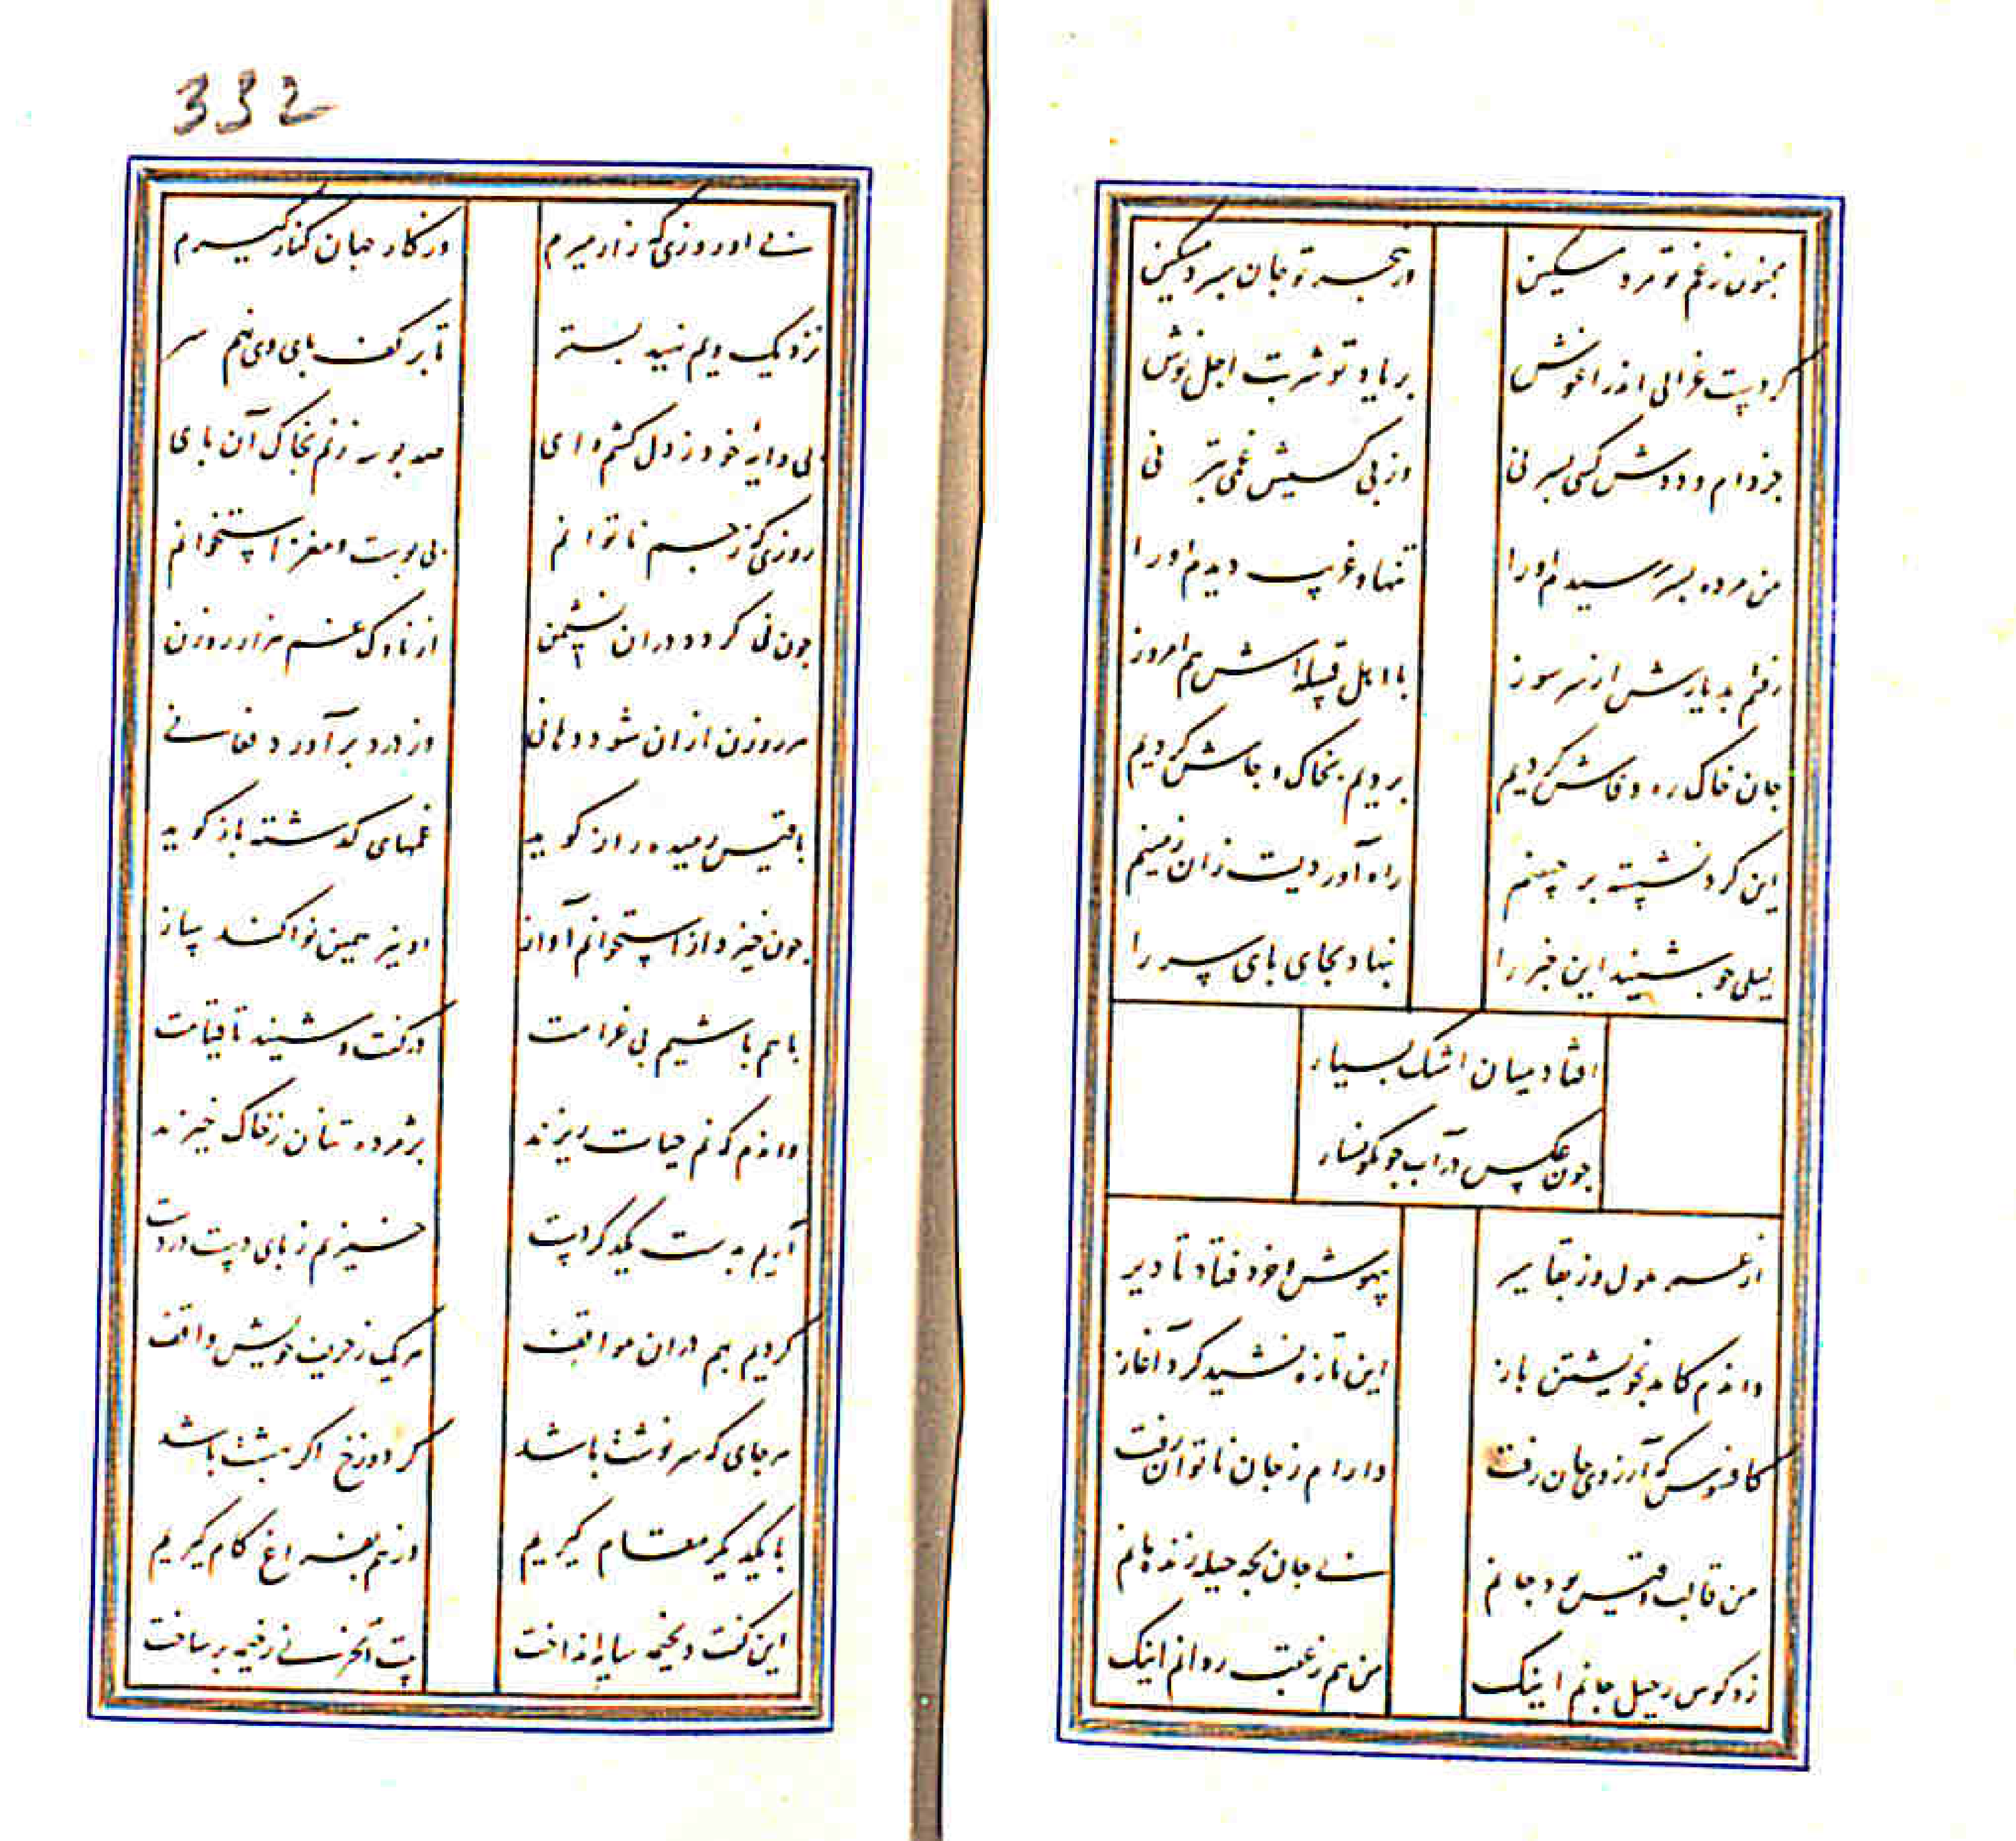 332
مجنون ز غم تو مرد مسکین
در هجر تو جان سپرد مسکین
کردست غزالی اندر آغوش
بر یاد تو شربت اجل نوش
جز دام و ددش کسی بسر نی
وز بی کسیش غمی بتر نی
من مرده بسر رسیدم او را
تنها و غریب دیدم او را
رفتم بدیارش از سر سوز
با اهل قبیله اش هم امروز
جان خاک ره وفاش کردیم
بردیم بخاک و جاش کردیم
این کرد نشسته بر جبینم
راه آوردیست زان زمینم
لیلی جو شنید این خبر را
بنهاد بجای بای سر را
افتاد میان اشک بسیار
جون عکس در آب جو نکونسار
از عمر ملول وز بقا سیر
بیهوش و خود فتاد تا دیر
واندم کامد بخویشتن باز
این تازه نشید کرد آغاز
کافسوس که آرزوی جان رفت
وارام ز جان ناتوان رفت
من قالب و قیس بود جانم
نی جان بجه حیله زنده مانم
زد کوس رحیل جانم اینک
من هم ز عقب روانم اینک
نی او روزی که زار میرم
وز کار جهان کنار کیرم
نزدیک ویم نهید بستر
تا بر کف بای وی نهم سر
بی وایهٔ خود ز دل کشم وای
صد بوسه زنم بخاک آن بای
روزی که ز جسم ناتوانم
بی بوست و مغز استخوانم
جون نی کردد دران نشیمن
از ناوک غم هزار روزن
هر روزن ازان شود دهانی
وز درد برآورد فغانی
با قیس رمیده راز کوید
غمهای کذشته باز کوید
جون خیزد از استخوانم آواز
او نیز همین نوا کند ساز
باهم باشیم بی غرامت
در کفت و شنید تا قیامت
واندم که نم حیات ریزند
بژمرده تنان ز خاک خیزند
آریم بدست یکدکر دست
خیزیم ز بای دست در دست
کردیم بهم دران مواقف
هر یک ز حریف خویش واقف
هر جای که سرنوشت باشد
کر دوزخ اکر بهشت باشد
با یکدیکر مقام کیریم
وز هم بفراغ کام کیریم
این کفت و بخیمه سایه انداخت